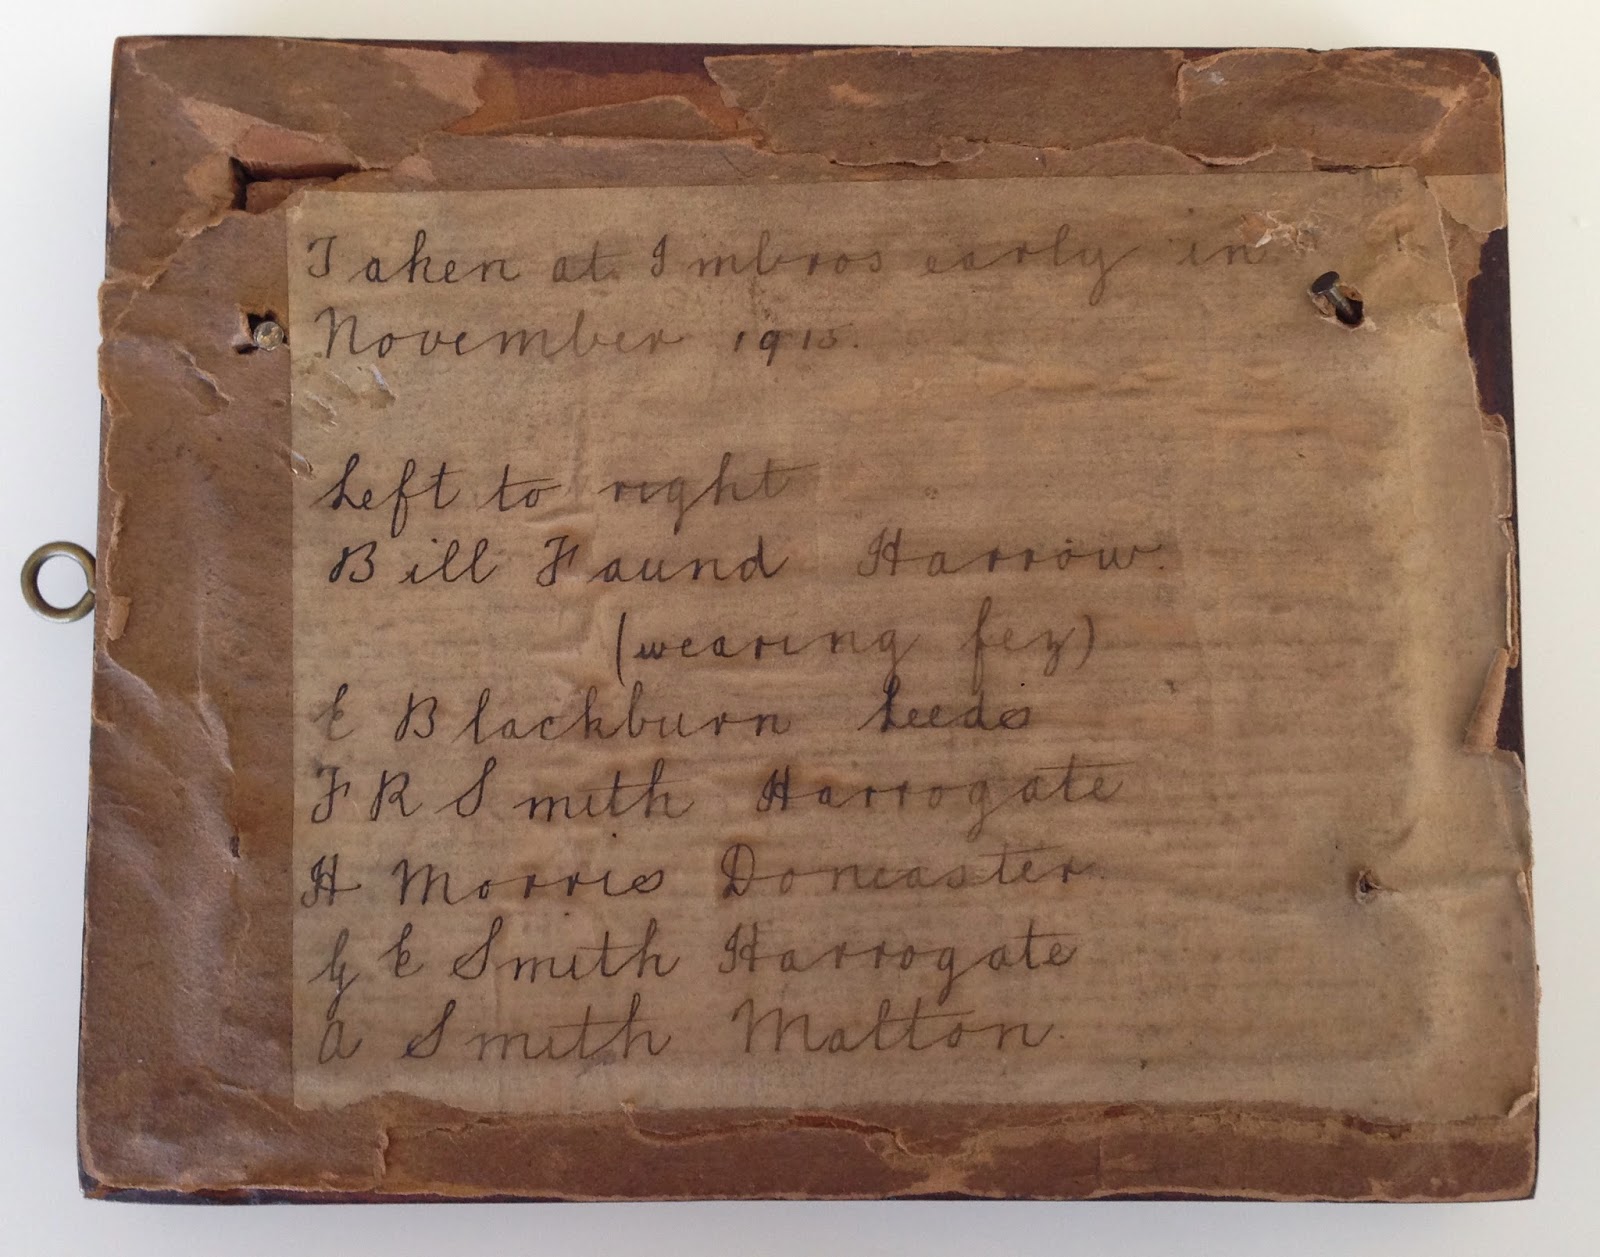 Taken at Imbros early in
November 1915.
Left to right
Bill Faund Harrow.
(wearing fez)
E Blackburn Leeds
F R Smith Harrogate
H Morris Doncaster
G E Smith Harrogate
A Smith Malton.